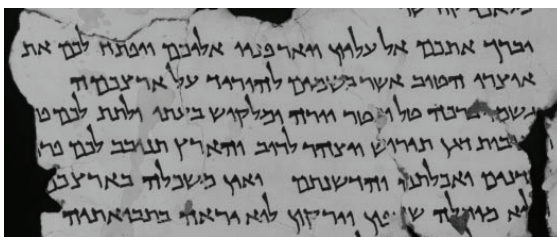 וברך אתכם אל עליון ויאר פניו אליכם ויפתח לכם את
אוצרו הטוב אשר בשמים להוריד על ארצכמה
גשמי ברכה טל ומטר יורה ומלקוש בעתו ולתת לכם
דגן תירוש ויצהר לרוב והארץ תנובב לכם פרי
ואכלתם והדשנתם ואין משכלה בארצכם
מוחלה וירקון לוא יראה בתבואתיה